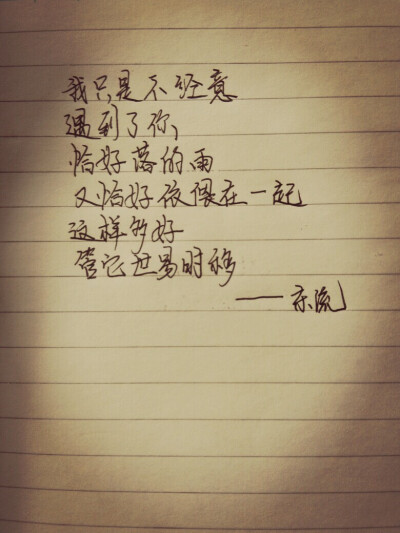 我只是不经意
遇到了你,
恰好落的雨
又恰好依偎在一起
这样多好
管它世易时移
——东流